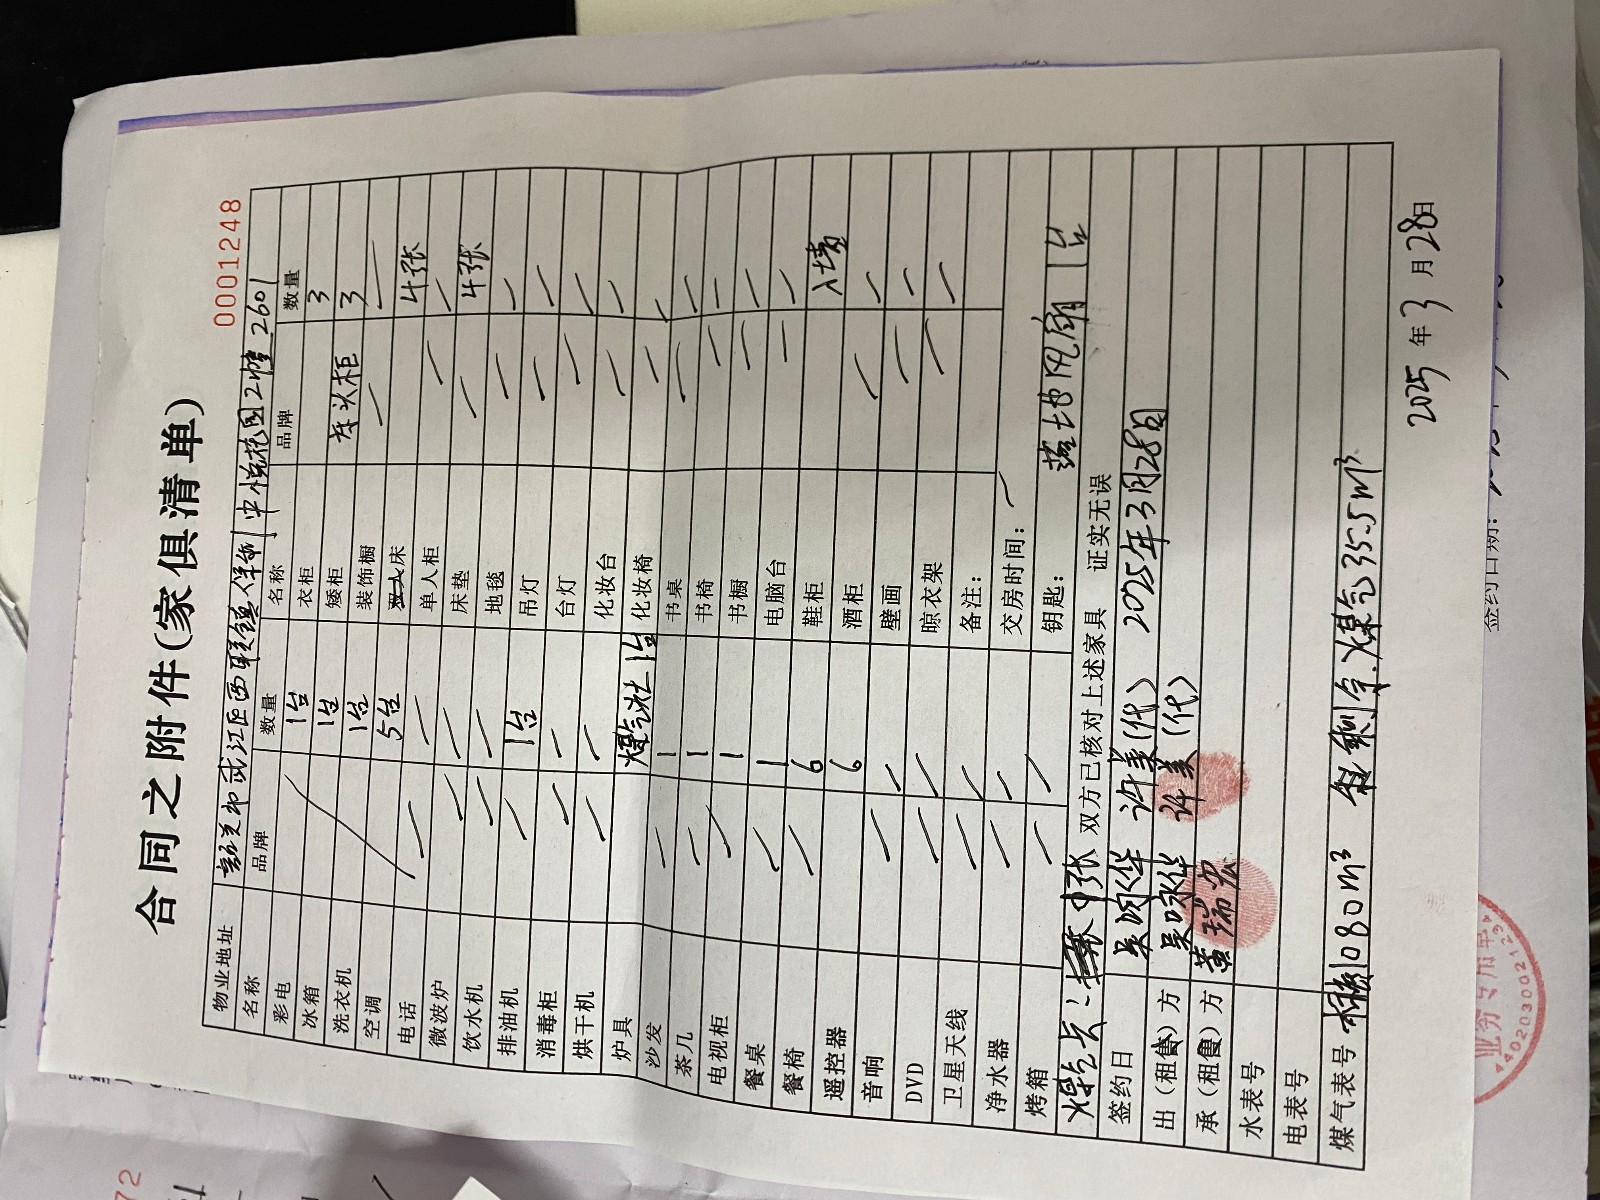 合同之附件(家俱清单)
0001248
物业地址 韶关市武江区西联镇 中悦花园2幢2601
名称 品牌 数量 名称 品牌 数量
彩电 1台 衣柜 3
冰箱 1台 矮柜 床头柜 3
洗衣机 1台 装饰橱
空调 5台 床 4张
电话 单人柜
微波炉 床垫 4张
饮水机 地毯
排油机 1台 吊灯
消毒柜 台灯
烘干机 化妆台
炉具 煤气灶1台 化妆椅
沙发 1 书桌
茶几 1 书椅
电视柜 1 书橱
餐桌 1 电脑台
餐椅 6 鞋柜 入墙
遥控器 6 酒柜
音响 壁画
DVD 晾衣架
卫星天线 备注:
净水器 交房时间:
烤箱 钥匙: 落地风扇1台
煤气卡: 1张 双方已核对上述家具 证实无误
签约日 吴咏华 许美(代) 2025年3月28日
出(租售)方 吴咏华 许美(代)
承(租售)方 黄瑞宏
水表号
电表号
煤气表号 1080m³ 剩余煤气35.5m³
2025年3月28日
签约日期:
业务专用章
4402030021294
72